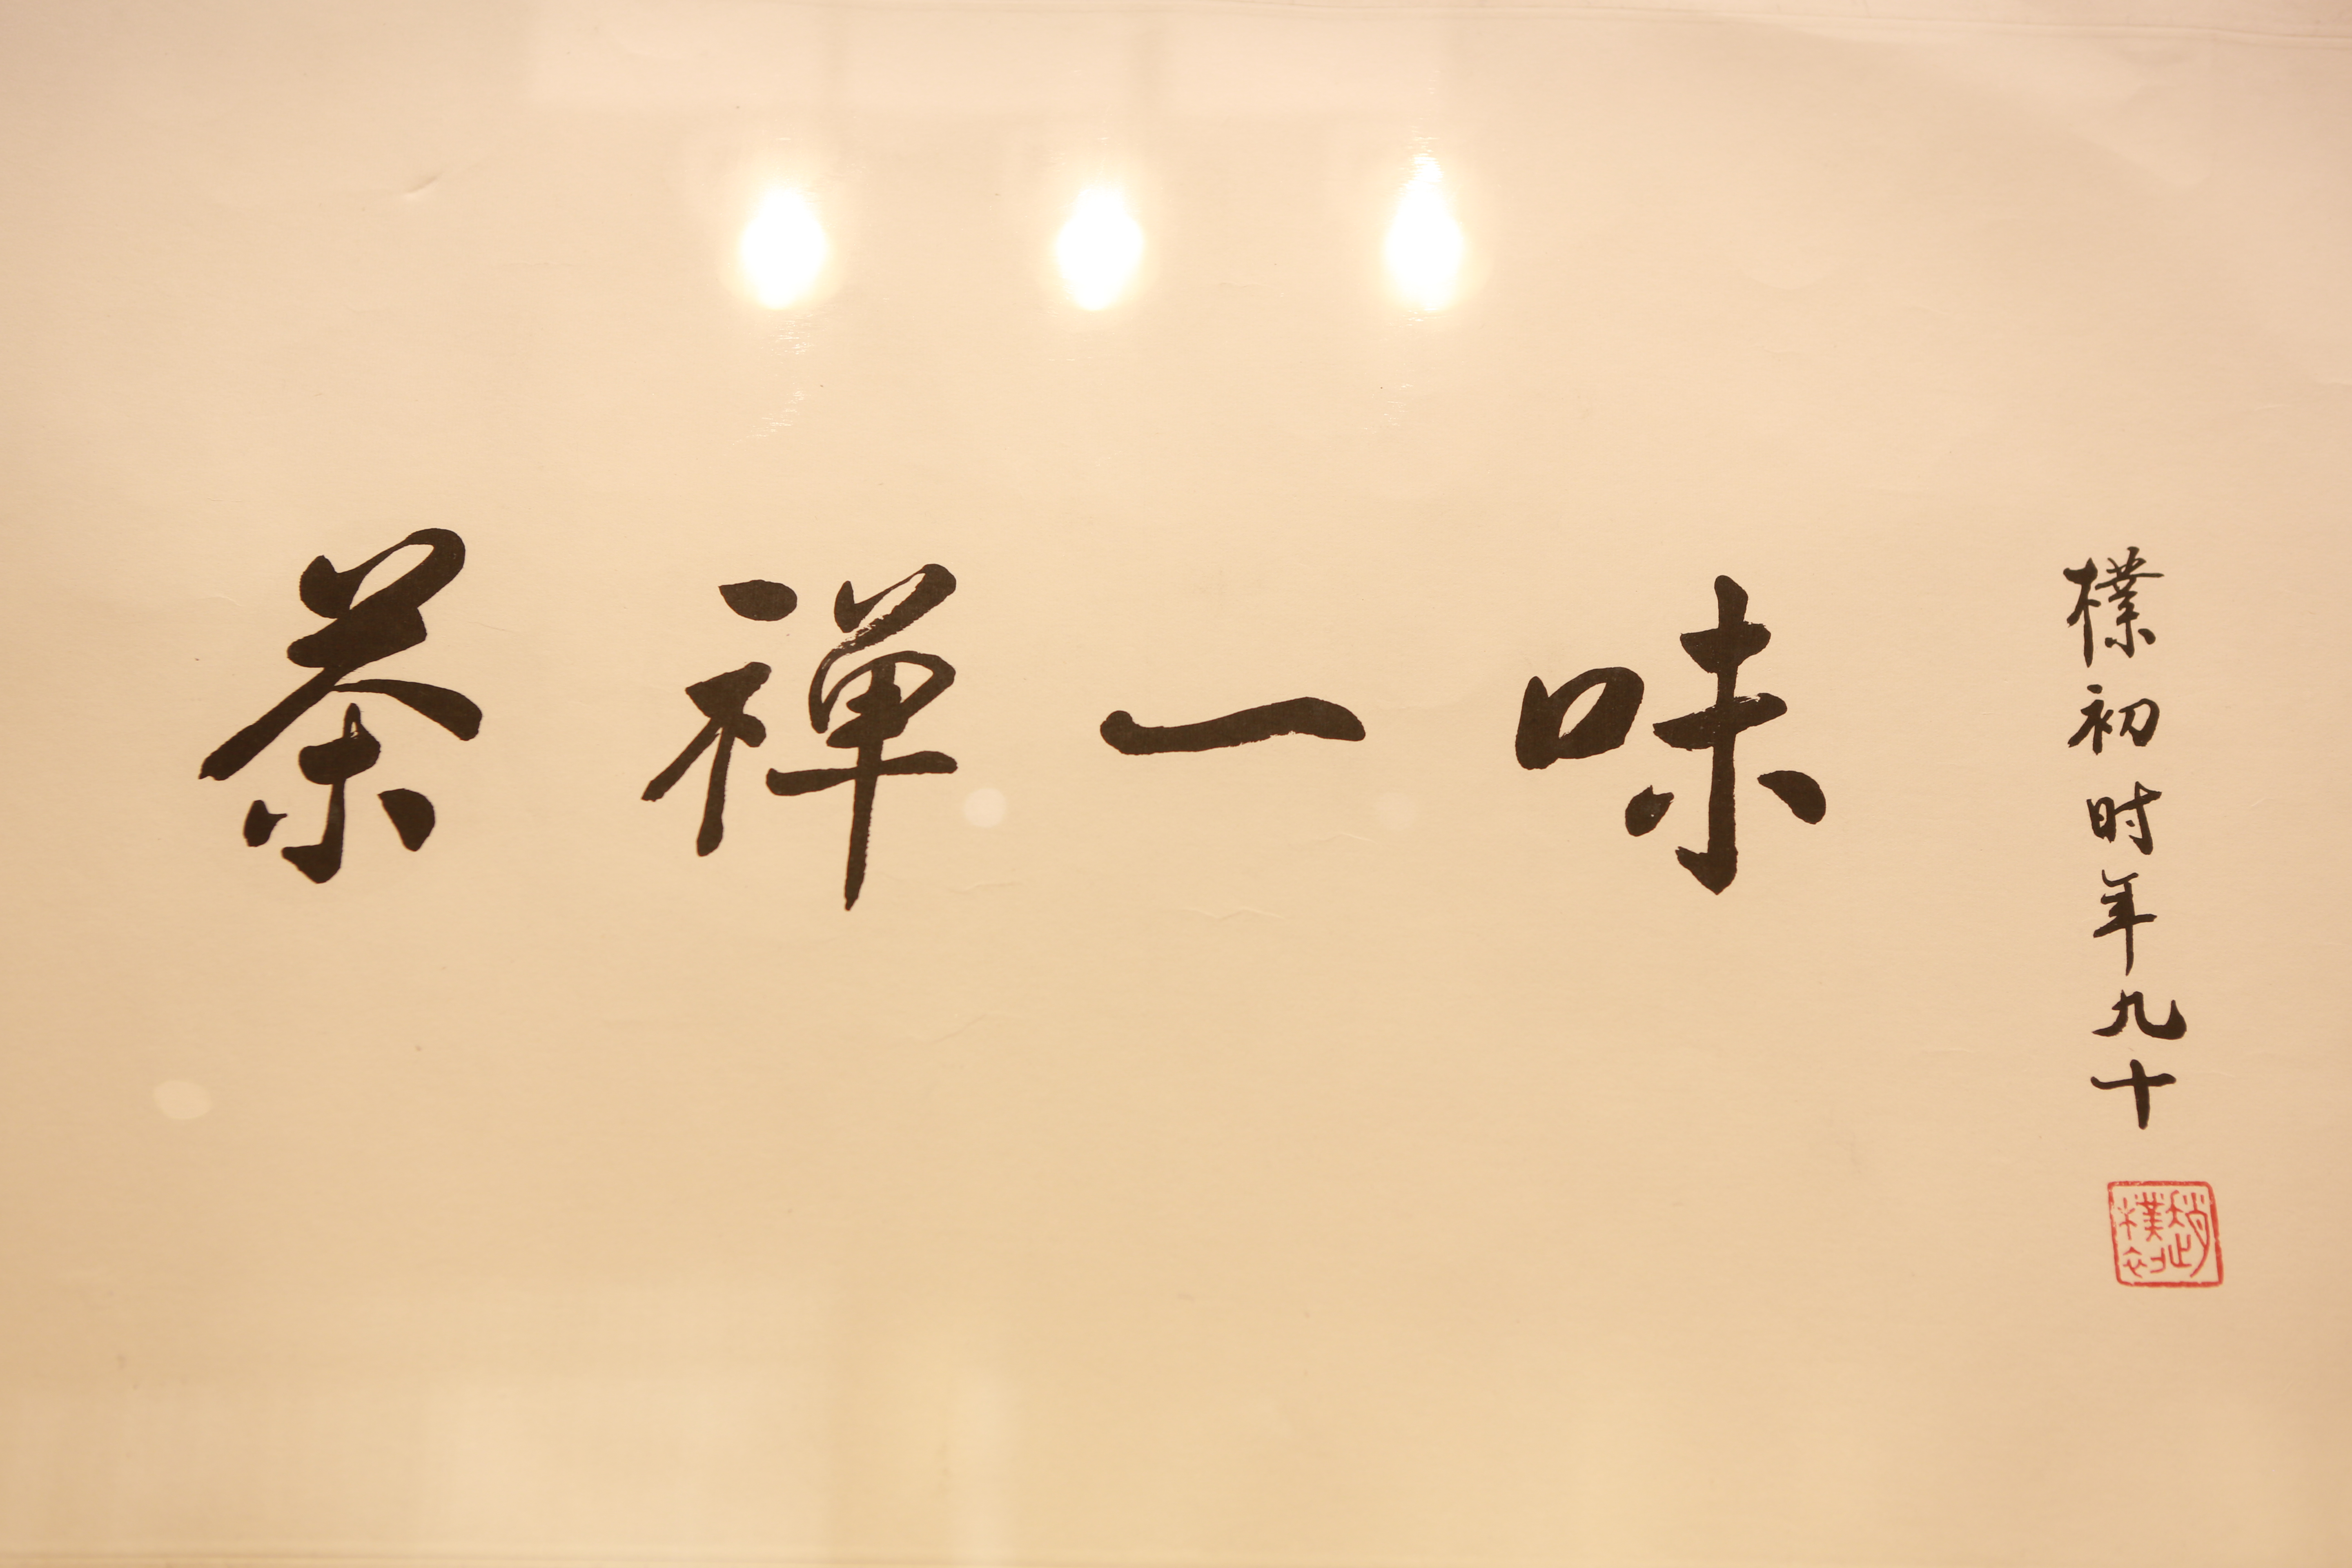 茶禅一味
樸初时年九十
趙樸初